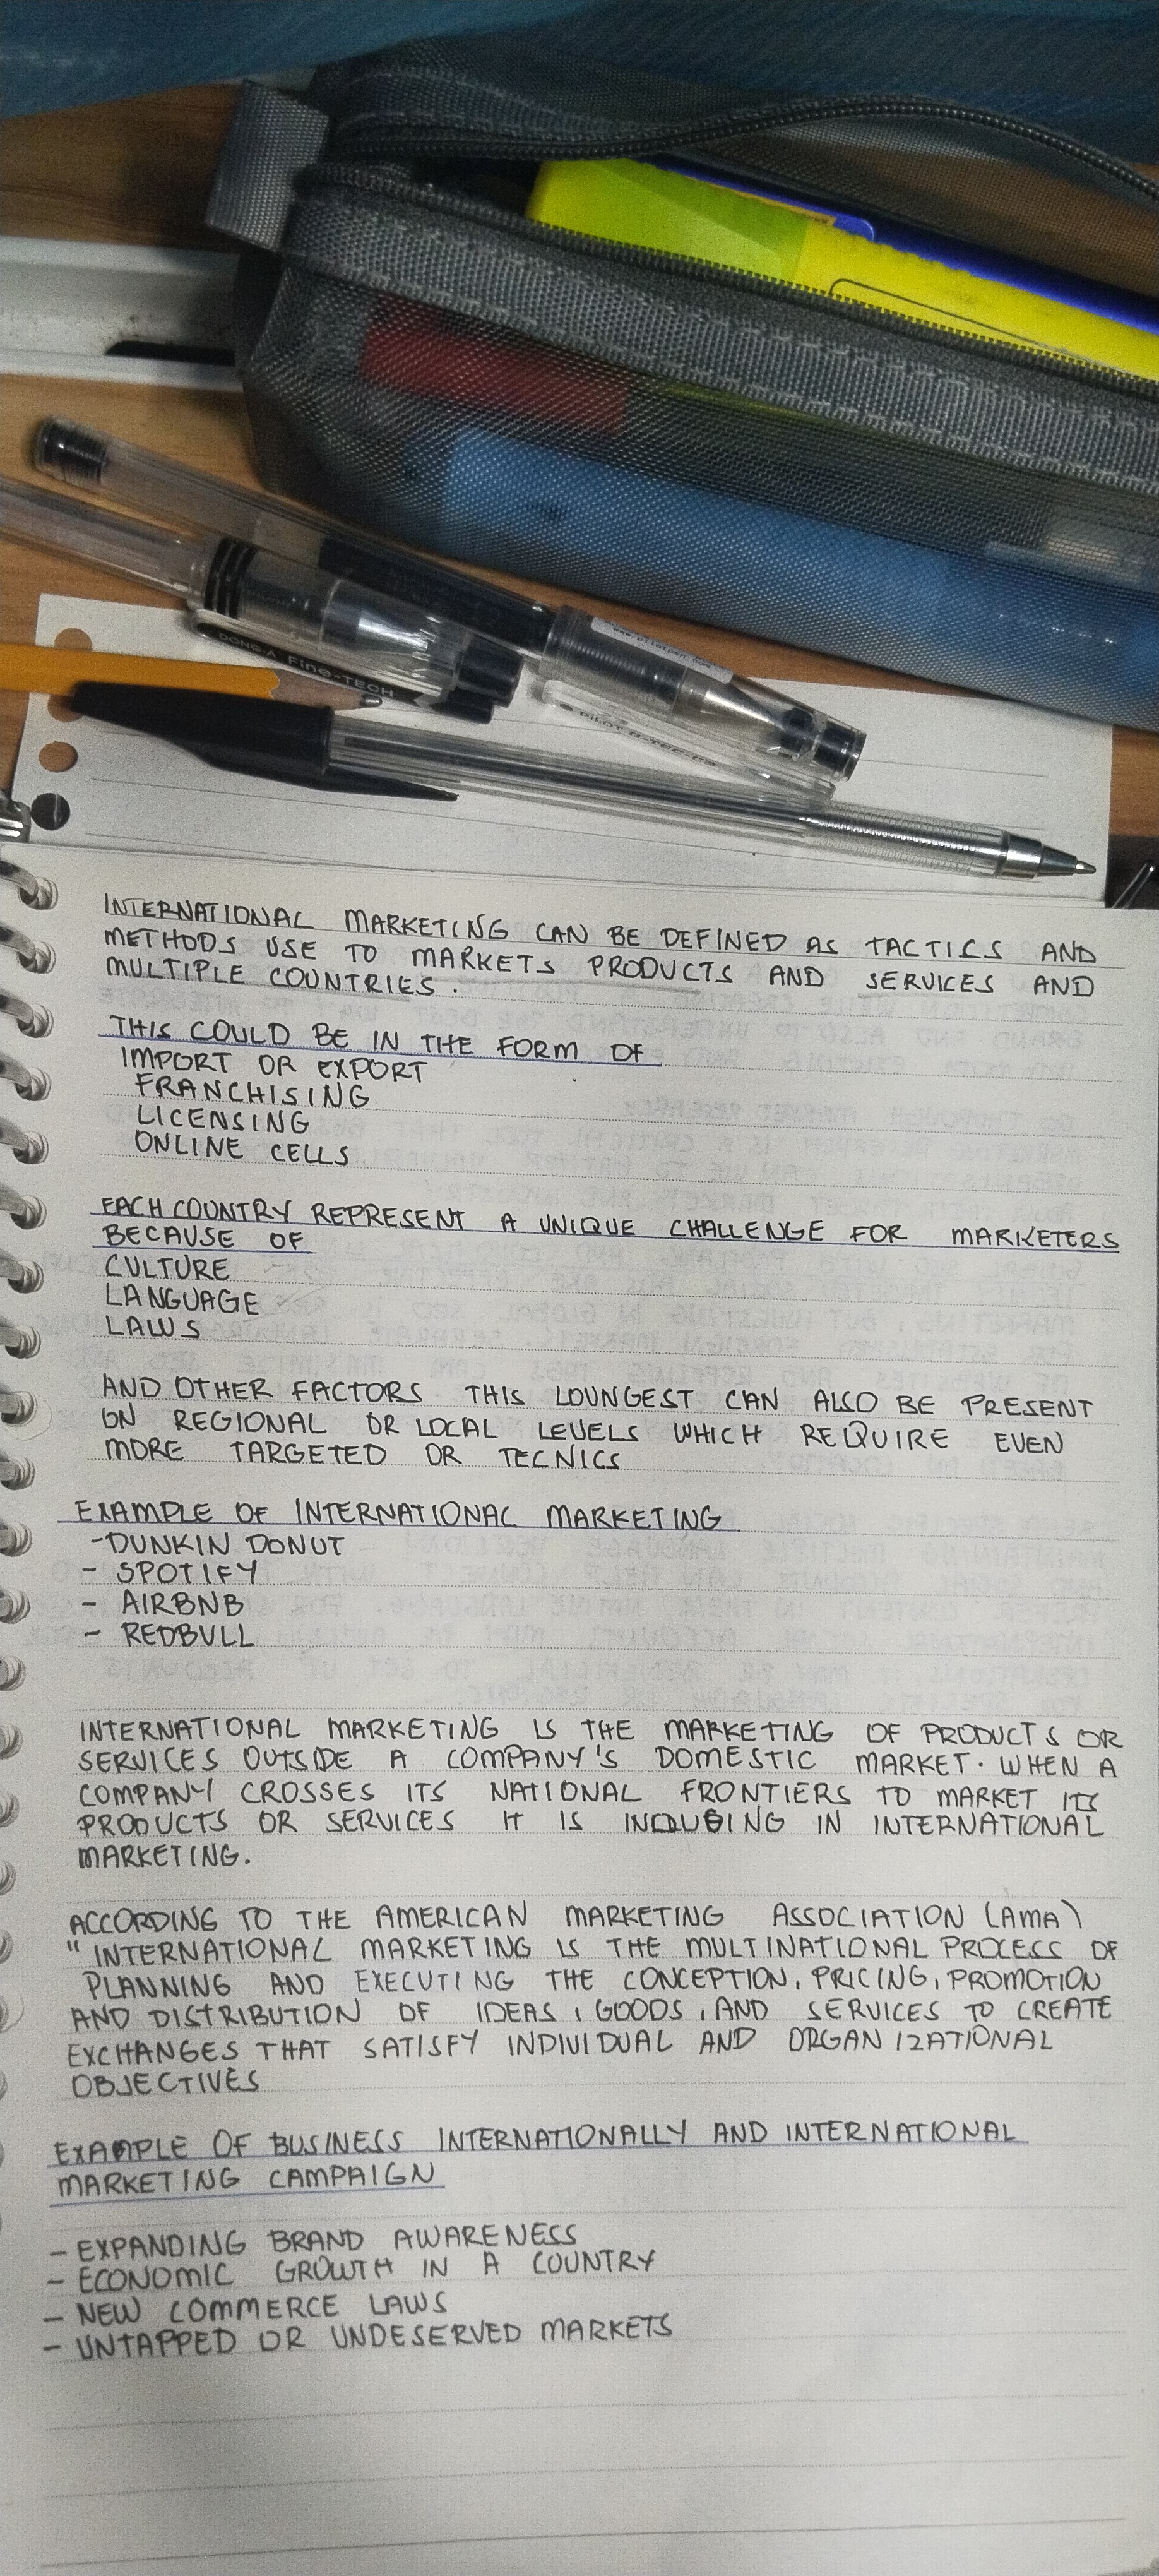 www.pilotpen.com
DONG-A Fine-TECH
PILOT
INTERNATIONAL MARKETING CAN BE DEFINED AS TACTICS AND
METHODS USE TO MARKETS PRODUCTS AND SERVICES AND
MULTIPLE COUNTRIES.
THIS COULD BE IN THE FORM OF
IMPORT OR EXPORT
FRANCHISING
LICENSING
ONLINE CELLS
EACH COUNTRY REPRESENT A UNIQUE CHALLENGE FOR MARKETERS
BECAUSE OF
CULTURE
LANGUAGE
LAWS
AND OTHER FACTORS THIS LOUNGEST CAN ALSO BE PRESENT
ON REGIONAL OR LOCAL LEVELS WHICH REQUIRE EVEN
MORE TARGETED OR TECNICS
EXAMPLE OF INTERNATIONAL MARKETING
-DUNKIN DONUT
- SPOTIFY
- AIRBNB
- REDBULL
INTERNATIONAL MARKETING IS THE MARKETING OF PRODUCTS OR
SERVICES OUTSIDE A COMPANY'S DOMESTIC MARKET. WHEN A
COMPANY CROSSES ITS NATIONAL FRONTIERS TO MARKET ITS
PRODUCTS OR SERVICES IT IS IN INTERNATIONAL
MARKETING.
ACCORDING TO THE AMERICAN MARKETING ASSOCIATION (AMA)
" INTERNATIONAL MARKETING IS THE MULTINATIONAL PROCESS OF
PLANNING AND EXECUTING THE CONCEPTION, PRICING, PROMOTION
AND DISTRIBUTION OF IDEAS, GOODS, AND SERVICES TO CREATE
EXCHANGES THAT SATISFY INDIVIDUAL AND ORGANIZATIONAL
OBJECTIVES
EXAMPLE OF BUSINESS INTERNATIONALLY AND INTERNATIONAL
MARKETING CAMPAIGN
- EXPANDING BRAND AWARENESS
- ECONOMIC GROWTH IN A COUNTRY
- NEW COMMERCE LAWS
- UNTAPPED OR UNDESERVED MARKETS